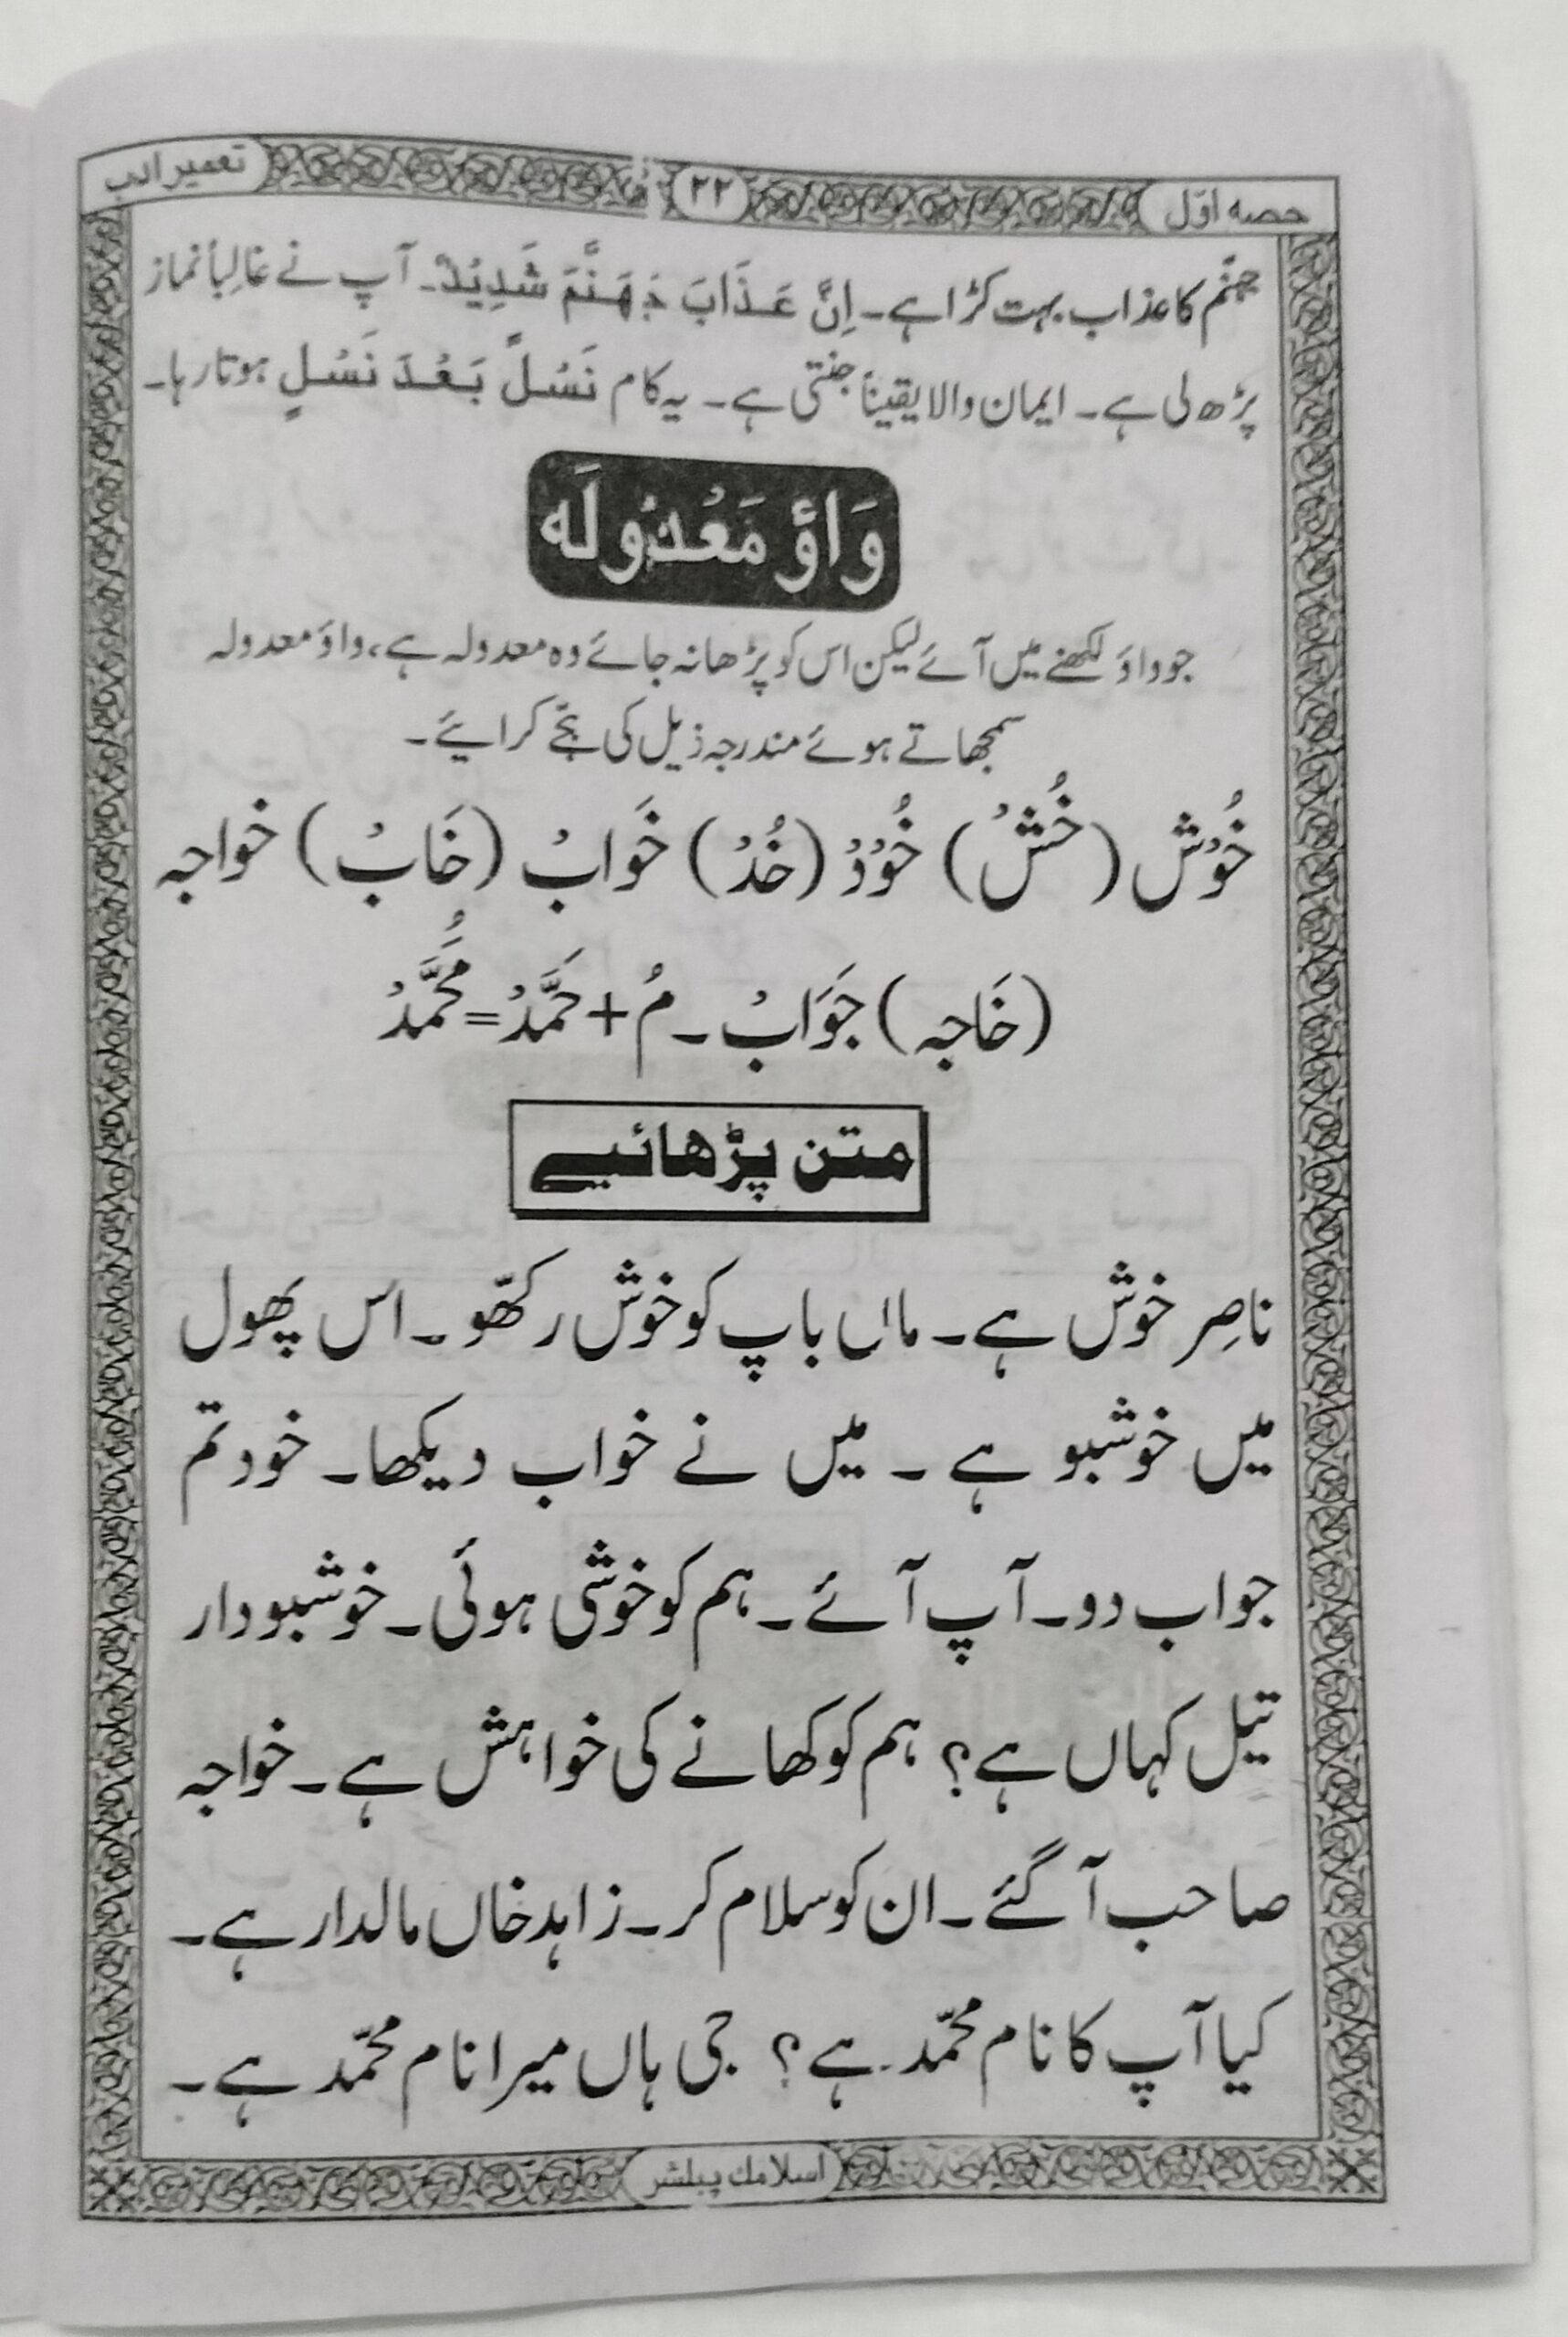 حصہ اوّل ۲۲ تعمیر ادب
جہنّم کا عذاب بہت کڑا ہے۔ اِنَّ عَذَابَ جَهَنَّمَ شَدِیْدٌ۔ آپ نے غالِباً نماز
پڑھ لی ہے۔ ایمان والا یقیناً جنتی ہے۔ یہ کام نَسْلًا بَعْدَ نَسْلٍ ہوتا رہا۔
وَاؤ مَعْدُولَه
جو واؤ لکھنے میں آئے لیکن اس کو پڑھا نہ جائے وہ معدولہ ہے، واؤ معدولہ
سمجھاتے ہوئے مندرجہ ذیل کی ہجّے کرایئے۔
خُوْشْ (خُشْ) خُوْدْ (خُدْ) خَوَابْ (خَابْ) خواجہ
(خَاجہ) جَوَابْ۔ مُ + حَمَّدْ = مُحَمَّدْ
متن پڑھائیے
ناصِر خوش ہے۔ ماں باپ کو خوش رکھّو۔ اس پھول
میں خوشبو ہے۔ میں نے خواب دیکھا۔ خود تم
جواب دو۔ آپ آئے۔ ہم کو خوشی ہوئی۔ خوشبودار
تیل کہاں ہے؟ ہم کو کھانے کی خواہش ہے۔ خواجہ
صاحب آگئے۔ ان کو سلام کر۔ زاہد خاں مالدار ہے۔
کیا آپ کا نام محمّد ہے؟ جی ہاں میرا نام محمّد ہے۔
اسلامك پبلشر